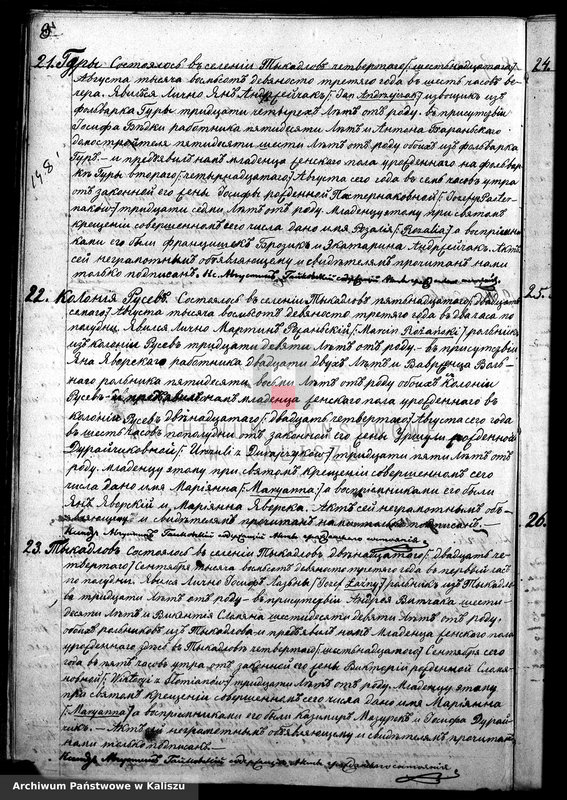 21. Гуры. Состоялось въ селеніи Тыкадловъ четвертаго /: шестнадцатаго :/
Августа тысяча восемьсотъ девяносто третяго года въ шесть часовъ ве-
чера. Явился лично Янъ Андрейчакъ /: Jan Andrzejczak :/ извощикъ изъ
фольварка Гуры тридцати четырехъ лѣтъ отъ роду. въ присутствіи
Іосифа работника пятидесяти лѣтъ и Антона Бараньскаго
пятидесяти шести лѣтъ отъ роду обоихъ изъ фольварка
Гуръ. - и предъявилъ намъ младенца женскаго пола урожденнаго на фольвар-
148.
кѣ Гуры втораго /: четырнадцатаго :/ Августа сего года въ семь часовъ утра
отъ законной его жены Іосифы рожденной Пастернаковной /: Józefy Paster-
naków :/ тридцати седми лѣтъ отъ роду. Младенцу этому при святомъ
крещеніи совершенномъ сего числа дано имя Розалія /: Rozalia :/ а воспріемни-
ками его были Францишекъ и Екатарина Андрейчакъ. Актъ
сей неграмотнымъ объявляющему и свидѣтелямъ прочитанъ нами
только подписанъ.
22. Колонія Русевъ. Состоялось въ селеніи Тыкадловъ пятнадцатаго /: двадцать
седмаго :/ Августа тысяча восемьсотъ девяносто третяго года въ два часа по
полудни. Явился лично Мартинъ Рожаньскій /: Marcin Rożański :/ рольникъ
изъ колоніи Русевъ тридцати девяти лѣтъ отъ роду. - въ присутствіи
Яна Яворскаго работника двадцати двухъ лѣтъ и Вавржинца
рольника пятидесяти восьми лѣтъ отъ роду обоихъ съ Колоніи
Русевъ - и предъявилъ намъ младенца женскаго пола урожденнаго въ
колоніи Русевъ двѣнадцатаго /: двадцать четвертаго :/ Августа сего года
въ шесть часовъ пополудни отъ законной его жены Уршули рожденной
Дурайчиковной /: Urszuli z Durajczyków :/ тридцати пяти лѣтъ отъ
роду. Младенцу этому при святомъ крещеніи совершенномъ сего
числа дано имя Маріянна /: Maryanna :/ а воспріемниками его были
Янъ Яверскій и Маріянна Яверска. Актъ сей неграмотнымъ объ-
являющему и свидѣтелямъ прочитанъ нами только подписанъ. -
23. Тыкадловъ. Состоялось въ селеніи Тыкадловъ двѣнадцатаго /: двадцать че-
твертаго :/ Сентября тысяча восемьсотъ девяносто третяго года въ первый часъ
по полудни. Явился лично Іосифъ /: Józef :/ рольникъ изъ Тыкадло-
ва тридцати лѣтъ отъ роду - въ присутствіи Андрея шести-
десяти лѣтъ и Викентія Сломяна шестидесяти девяти лѣтъ отъ роду,
обоихъ рольниковъ изъ Тыкадлова и предъявилъ намъ младенца женскаго пола
урожденнаго здѣсь въ Тыкадловѣ четвертаго /: шестнадцатаго :/ Сентября сего
года въ пять часовъ утра отъ законной его жены Викторіи рожденной Сломя-
новной /: Wiktoryi z Słomianów :/ тридцати лѣтъ отъ роду. Младенцу этому
при святомъ крещеніи совершенномъ сего числа дано имя Маріянна
/: Maryanna :/ а воспріемниками его были Казимиръ Мазурекъ и Іосифа Дурай-
чикъ. - Актъ сей неграмотнымъ объявляющему и свидѣтелямъ прочитанъ
нами только подписанъ. -
24.
25.
26.
ARCHIWUM PAŃSTWOWE
Archiwum Państwowe w Kaliszu